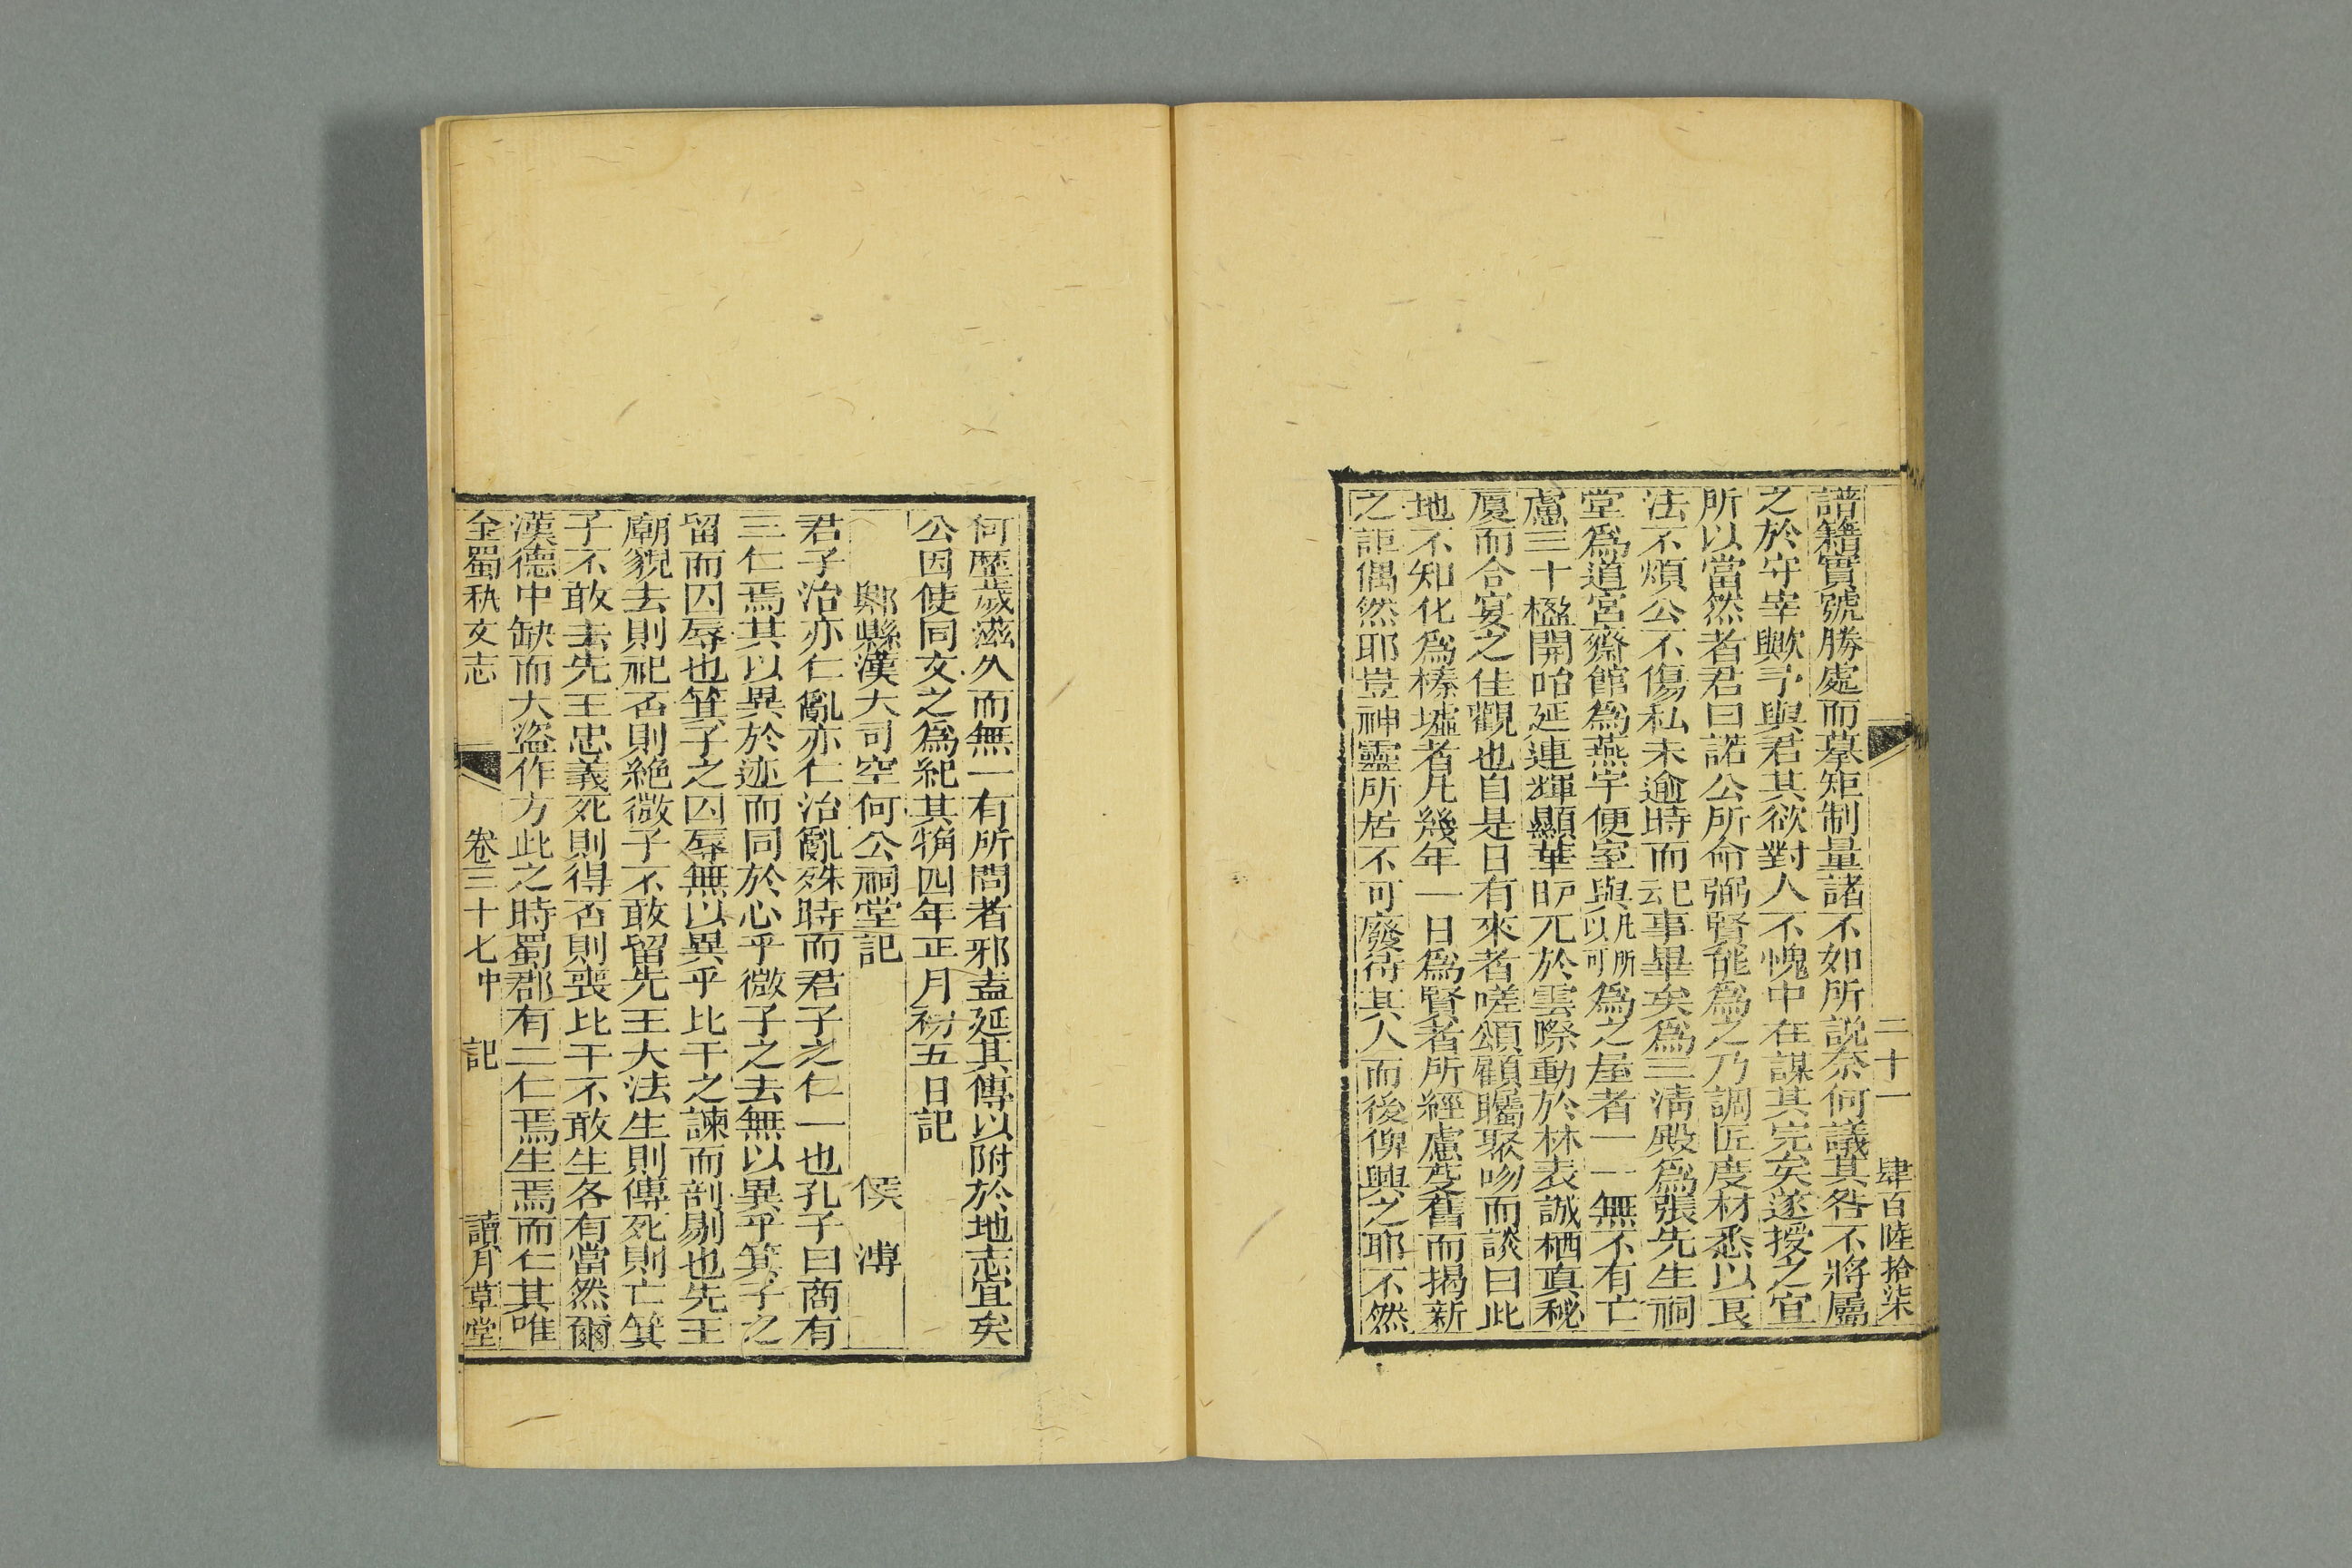 二十一　肆百陸拾柒
譜籍實號勝處而摹矩制量諸不如所説奈何議其咎不將屬
之於守宰歟予與君其欲對人不愧中在謀其完矣遂授之宜
所以當然者君曰諾公所命弼賢能爲之乃調匠度材悉以良
法不煩公不傷私未逾時而記事畢矣爲三淸殿爲張先生祠
堂爲道宮齋館爲燕宇便室與凡所以可爲之屋者一一無不有亡
慮三十楹開哈延連輝顯華昈兀於雲際動於林表誠栖眞秘
厦而合宴之佳觀也自是日有來者嗟頌顧矚聚吻而談曰此
地不知化爲榛墟者凡幾年一日爲賢者所經慮芟舊而揭新
之詎偶然耶豈神靈所居不可廢待其人而後俾興之耶不然
何歷歲滋久而無一有所問者邪盍延其傳以附於地志宜矣
公因使同文之爲紀其觕四年正月初五日記
郫縣漢大司空何公祠堂記　侯溥
君子治亦仁亂亦仁治亂殊時而君子之仁一也孔子曰商有
三仁焉其以異於迹而同於心乎微子之去無以異乎箕子之
留而囚辱也箕子之囚辱無以異乎比干之諫而剖剔也先王
廟貌去則祀否則絶微子不敢留先王大法生則傳死則亡箕
子不敢去先王忠義死則得否則喪比干不敢生各有當然爾
漢德中缺而大盜作方此之時蜀郡有二仁焉生焉而仁其唯
全蜀秇文志　卷三十七中　記　讀月草堂